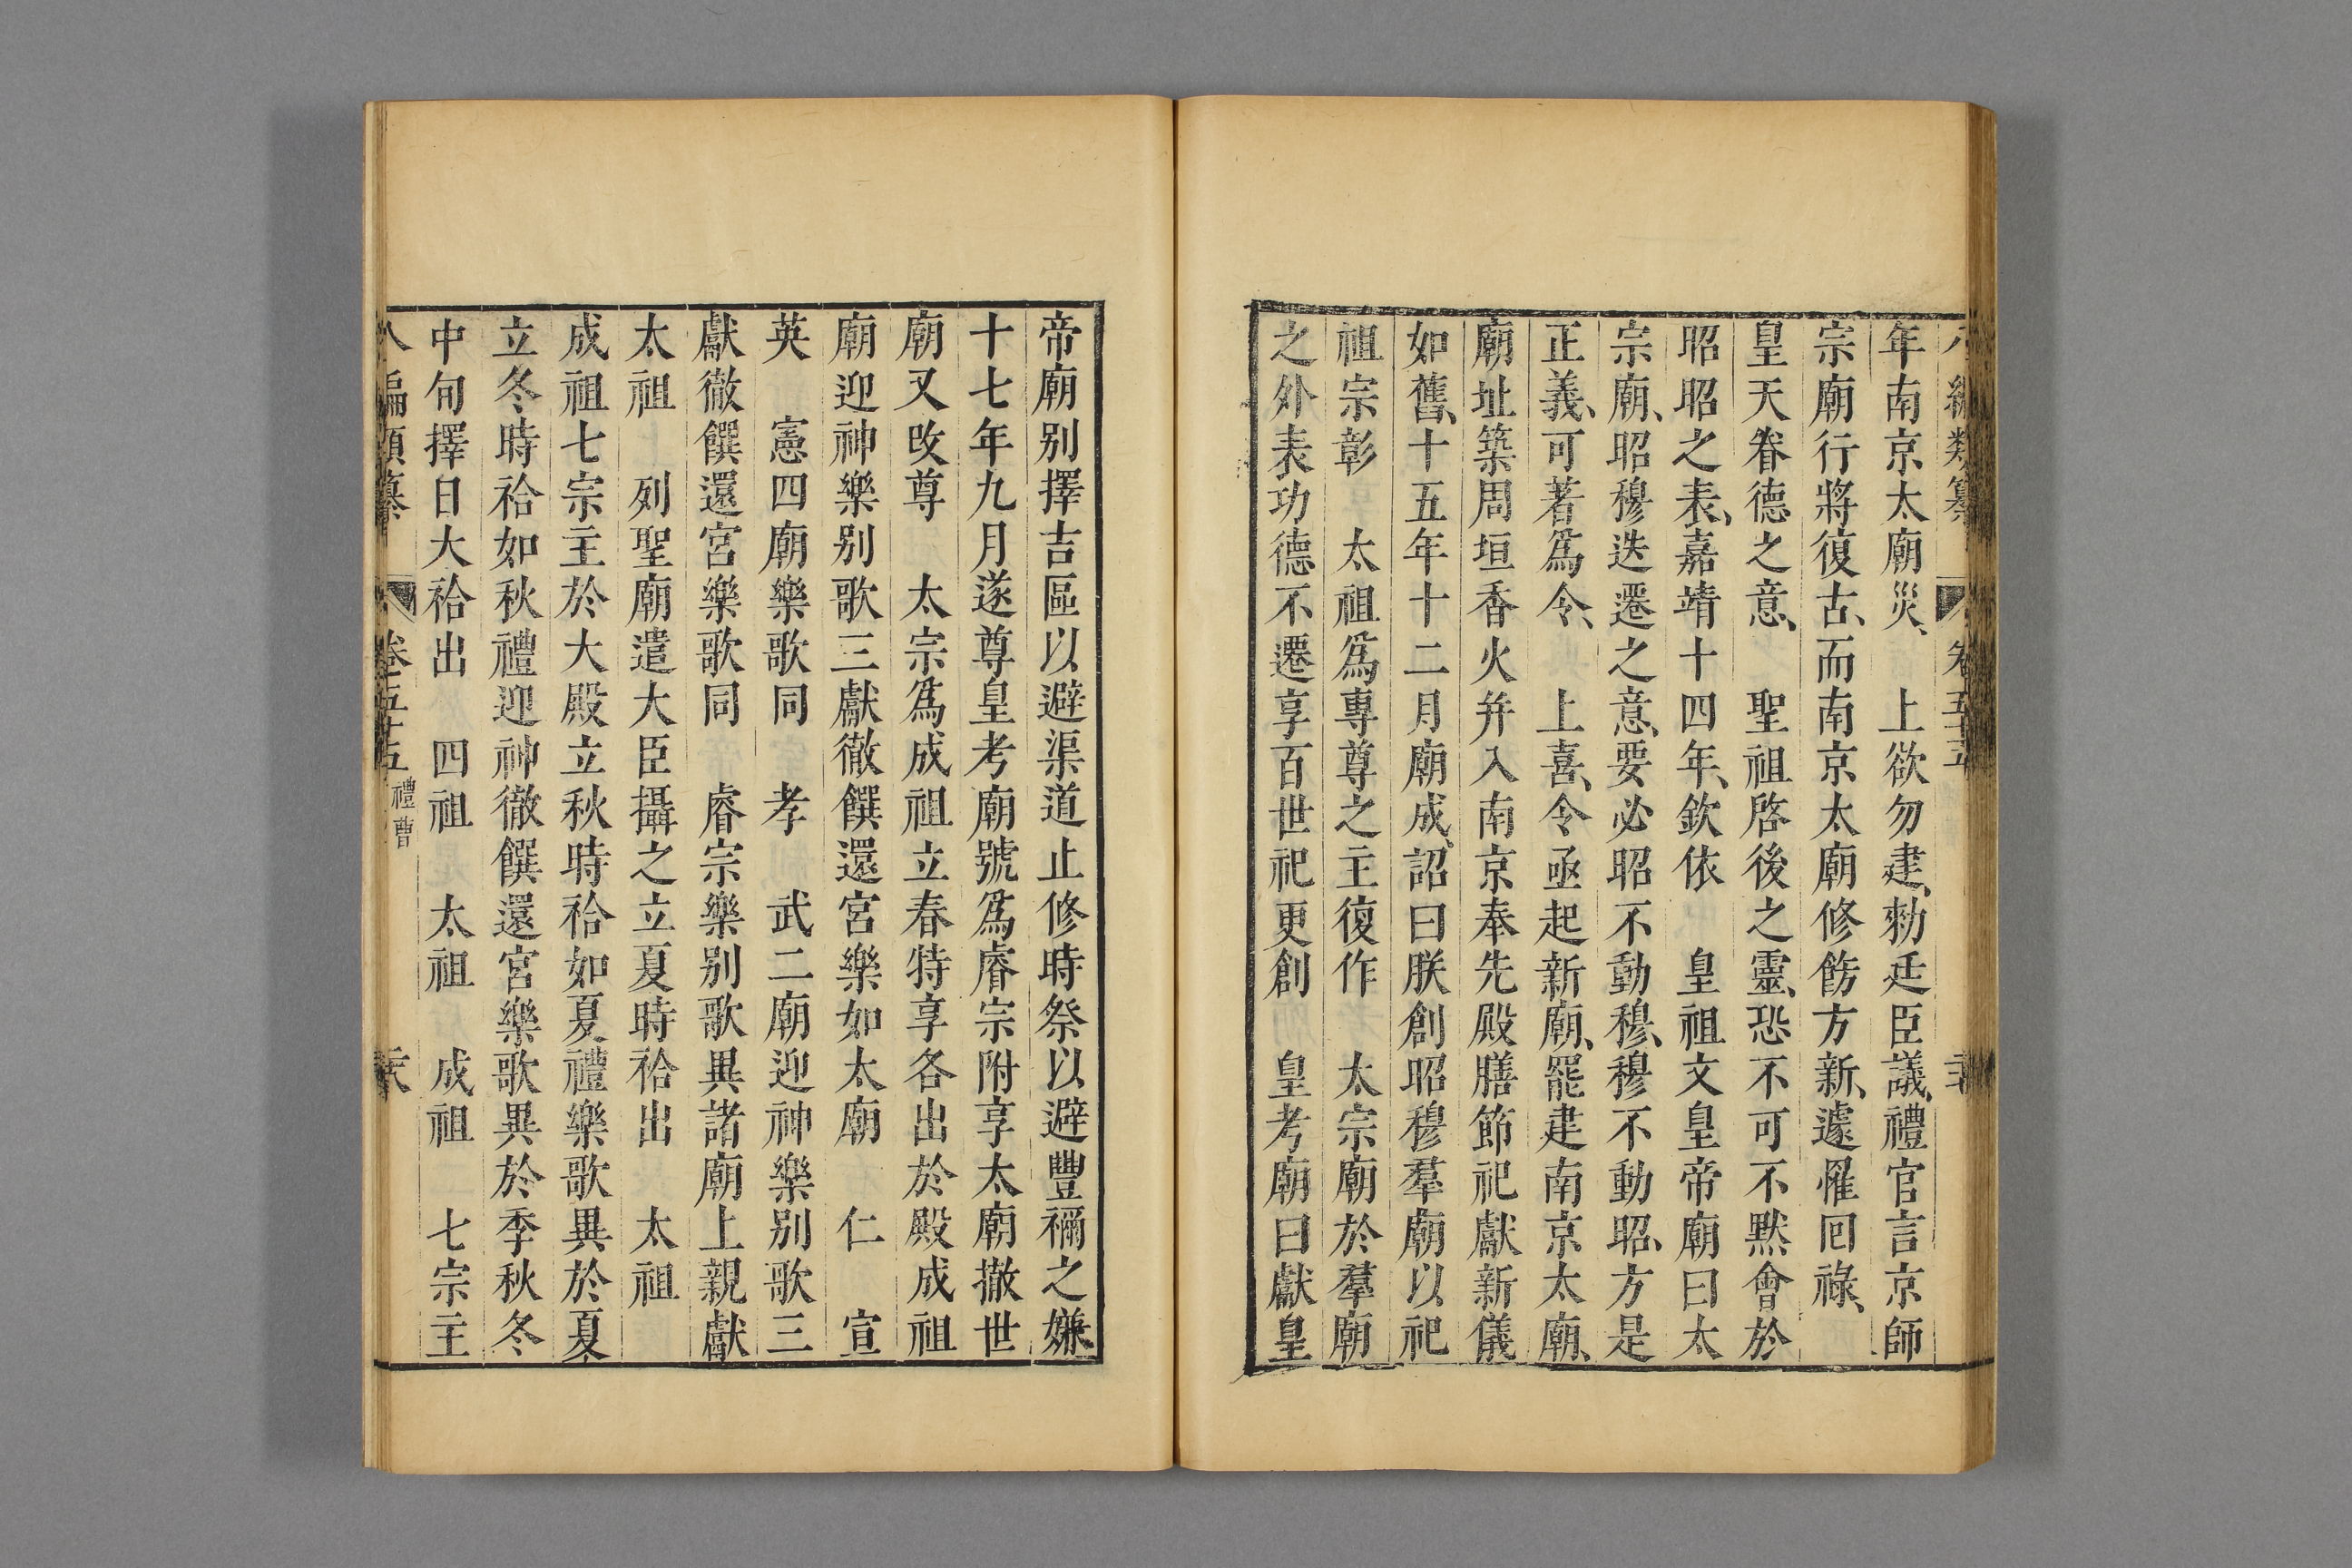 年南京太廟災、 上欲勿建、勑廷臣議、禮官言京師
宗廟行將復古、而南京太廟修飭方新、遽罹囘祿、
皇天眷德之意、 聖祖啓後之靈、恐不可不默會於
昭昭之表、嘉靖十四年、欽依 皇祖文皇帝廟曰太
宗廟、昭穆迭遷之意、要必昭不動穆、穆不動昭、方是
正義、可著爲令、 上喜、令亟起新廟、罷建南京太廟、
廟址築周垣香火并入南京奉先殿膳節祀獻新儀
如舊、十五年十二月廟成、詔曰朕創昭穆羣廟以祀
祖宗彰 太祖爲專尊之主復作 太宗廟於羣廟
之外表功德不遷享百世祀更創 皇考廟曰獻皇
帝廟别擇吉區以避渠道止修時祭以避豐禰之嫌
十七年九月遂尊皇考廟號爲睿宗附享太廟撤世
廟又改尊 太宗爲成祖立春特享各出於殿成祖
廟迎神樂别歌三獻徹饌還宮樂如太廟 仁 宣
英 憲四廟樂歌同 孝 武二廟迎神樂别歌三
獻徹饌還宮樂歌同 睿宗樂别歌異諸廟上親獻
太祖 列聖廟遣大臣攝之立夏時祫出 太祖
成祖七宗主於大殿立秋時祫如夏禮樂歌異於夏
立冬時祫如秋禮迎神徹饌還宮樂歌異於季秋冬
中旬擇日大祫出 四祖 太祖 成祖 七宗主
八編類纂 卷五十五 禮曹 二十六